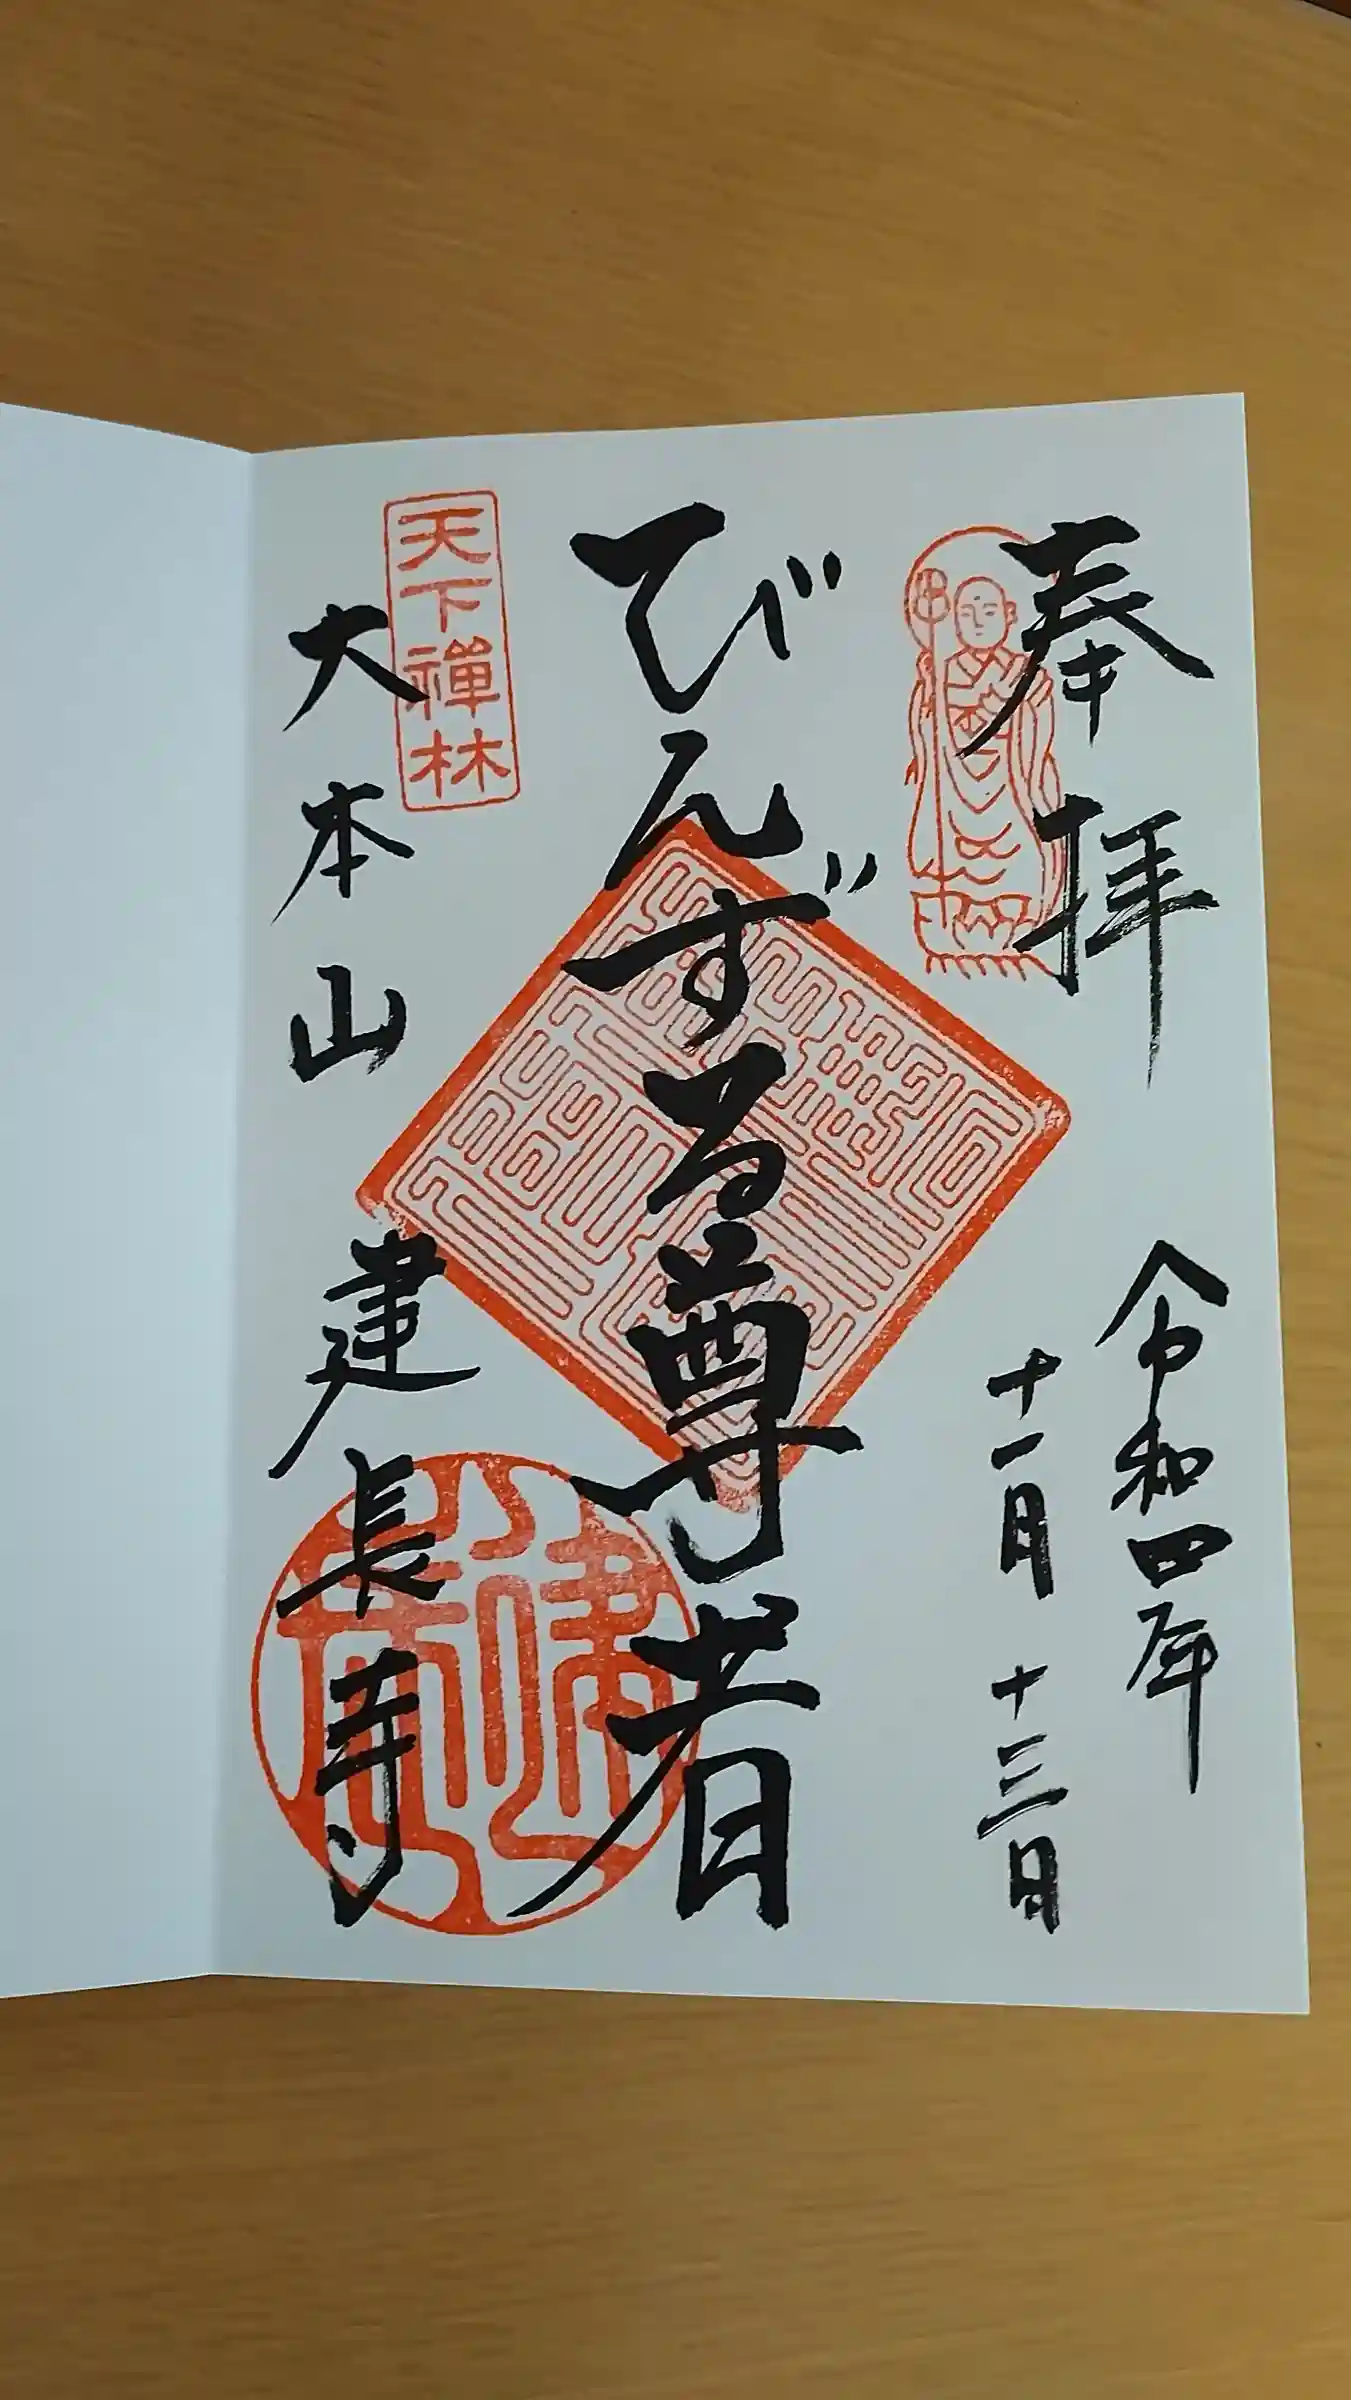 奉拝
令和四年
十一月十三日
びんずる尊者
天下禅林
大本山建長寺